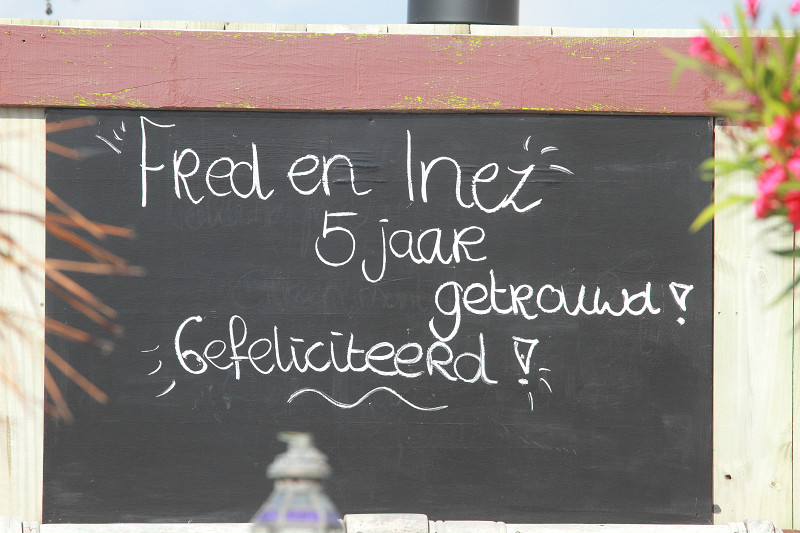 Fred en Inez
5 jaar
getrouwd!
Gefeliciteerd!